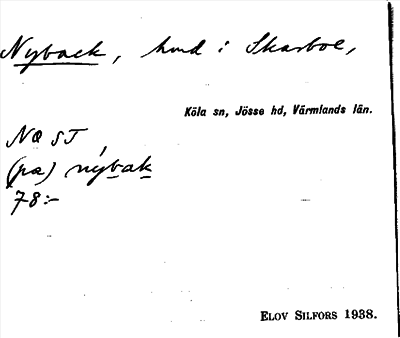 Nyback, hmd i Skarbol,
Köla sn, Jösse hd, Värmlands län.
NQ ST,
(pa) nýbak
78:-
ELOV SILFORS 1938.